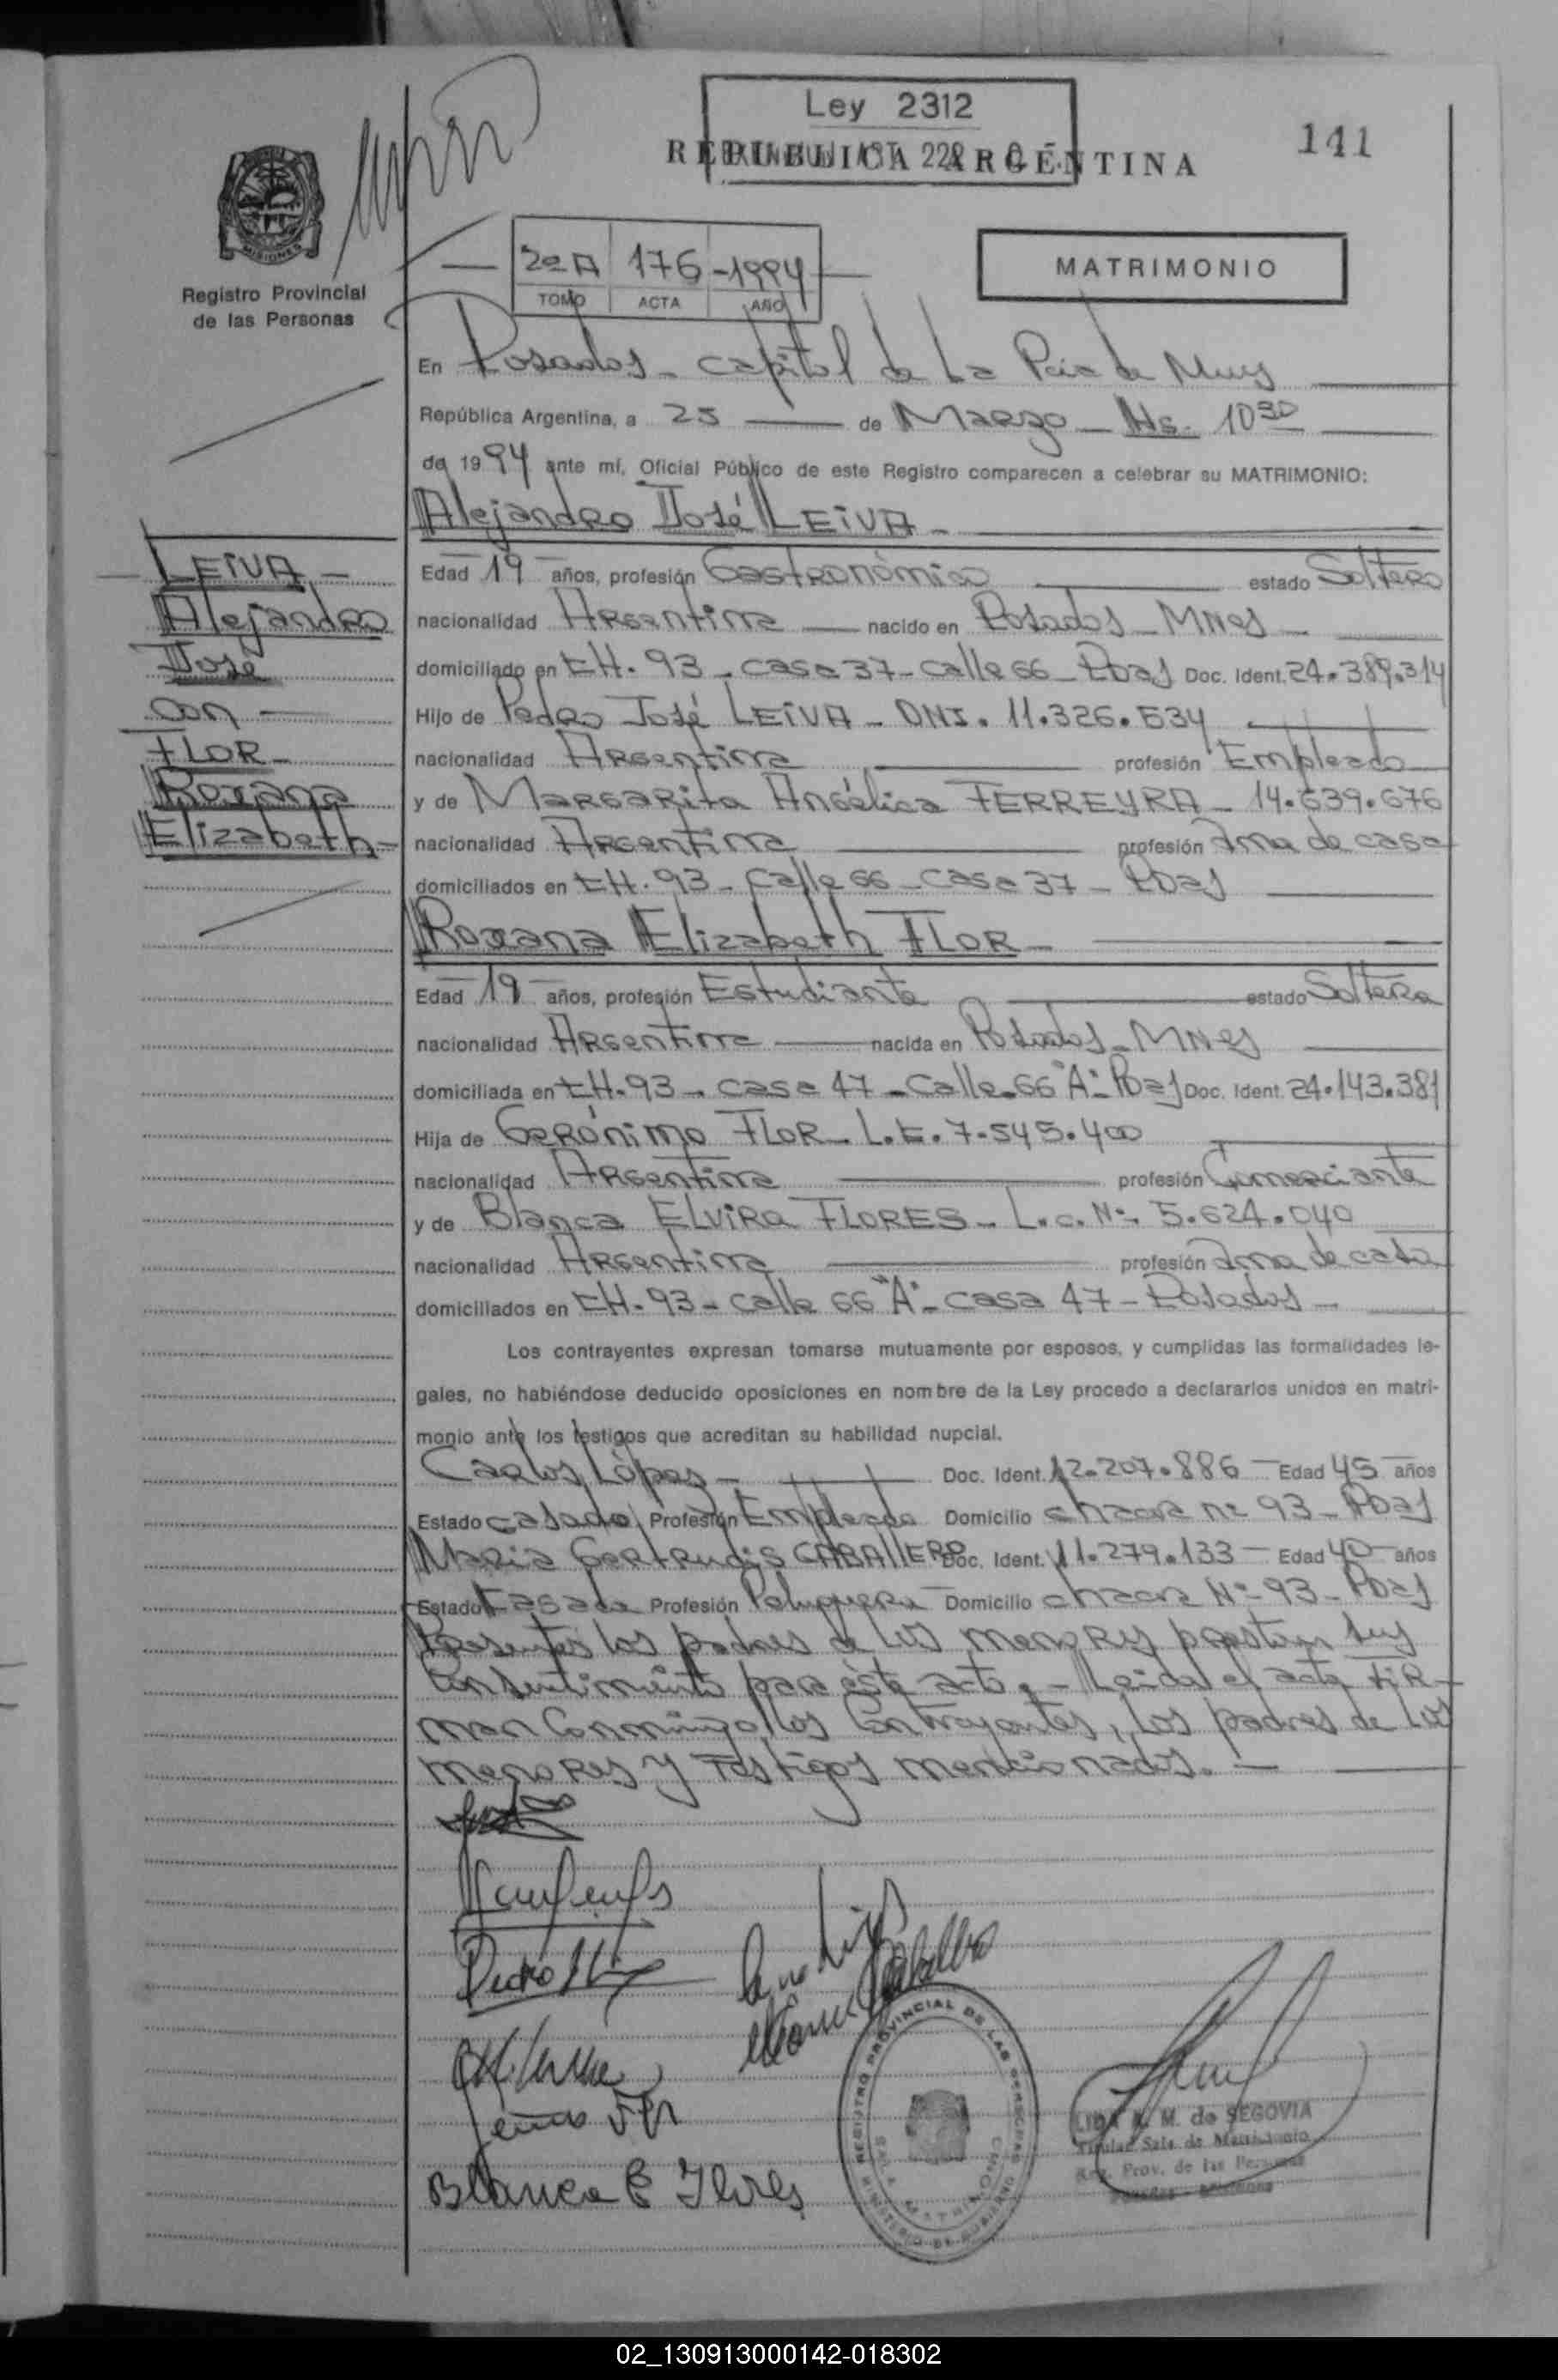 Ley 2312
REPUBLICA ARGENTINA
141
MISIONES
Registro Provincial
de las Personas
2º A 176 - 1994
TOMO ACTA AÑO
MATRIMONIO
En Posadas - Capital de La Pcia de Mnes
República Argentina, a 25 de Marzo - Hs. 10 30
de 1994 ante mí, Oficial Público de este Registro comparecen a celebrar su MATRIMONIO:
Alejandro José LEIVA -
LEIVA -
Alejandro
José
con
FLOR -
Roxana
Elizabeth -
Edad 19 años, profesión Gastronómico estado Soltero
nacionalidad Argentina nacido en Posadas - MNes -
domiciliado en CH. 93 - casa 37 - calle 66 - Pdas Doc. Ident. 24.389.314
Hijo de Pedro José LEIVA - DNI. 11.326.534
nacionalidad Argentina profesión Empleado
y de Margarita Angélica FERREYRA - 14.639.676
nacionalidad Argentina profesión Ama de casa
domiciliados en CH. 93 - Calle 66 - casa 37 - Pdas
Roxana Elizabeth FLOR -
Edad 19 años, profesión Estudiante estado Soltera
nacionalidad Argentina nacida en Posadas - MNes
domiciliada en CH. 93 - casa 47 - Calle 66 "A" - Pdas Doc. Ident. 24.143.381
Hija de Gerónimo FLOR - L.E. 7.545.400
nacionalidad Argentina profesión Comerciante
y de Blanca ELVIRA FLORES - L.C. Nº 5.624.040
nacionalidad Argentina profesión Ama de casa
domiciliados en CH. 93 - calle 66 "A" - casa 47 - Posadas -
Los contrayentes expresan tomarse mutuamente por esposos, y cumplidas las formalidades le-
gales, no habiéndose deducido oposiciones en nombre de la Ley procedo a declararlos unidos en matri-
monio ante los testigos que acreditan su habilidad nupcial.
Carlos López - Doc. Ident. 12.207.886 Edad 45 años
Estado casado Profesión Empleado Domicilio chacra nº 93 - Pdas
Maria Gertrudis CABALLERO Doc. Ident. 11.279.133 Edad 40 años
Estado Casada Profesión Peluquera Domicilio chacra Nº 93 - Pdas
Presentes los padres de los menores prestan sus
Consentimiento para éste acto. - Leida el acta FIR-
man Conmigo los Contrayentes, los padres de los
menores y Testigos mencionados. -
Blanca E Flores
REGISTRO PROVINCIAL DE LAS PERSONAS
MINISTERIO DE GOBIERNO
LIDA M. de SEGOVIA
Titular Sala de Matrimonio
Reg. Prov. de las Personas
Posadas - Misiones
02_130913000142-018302